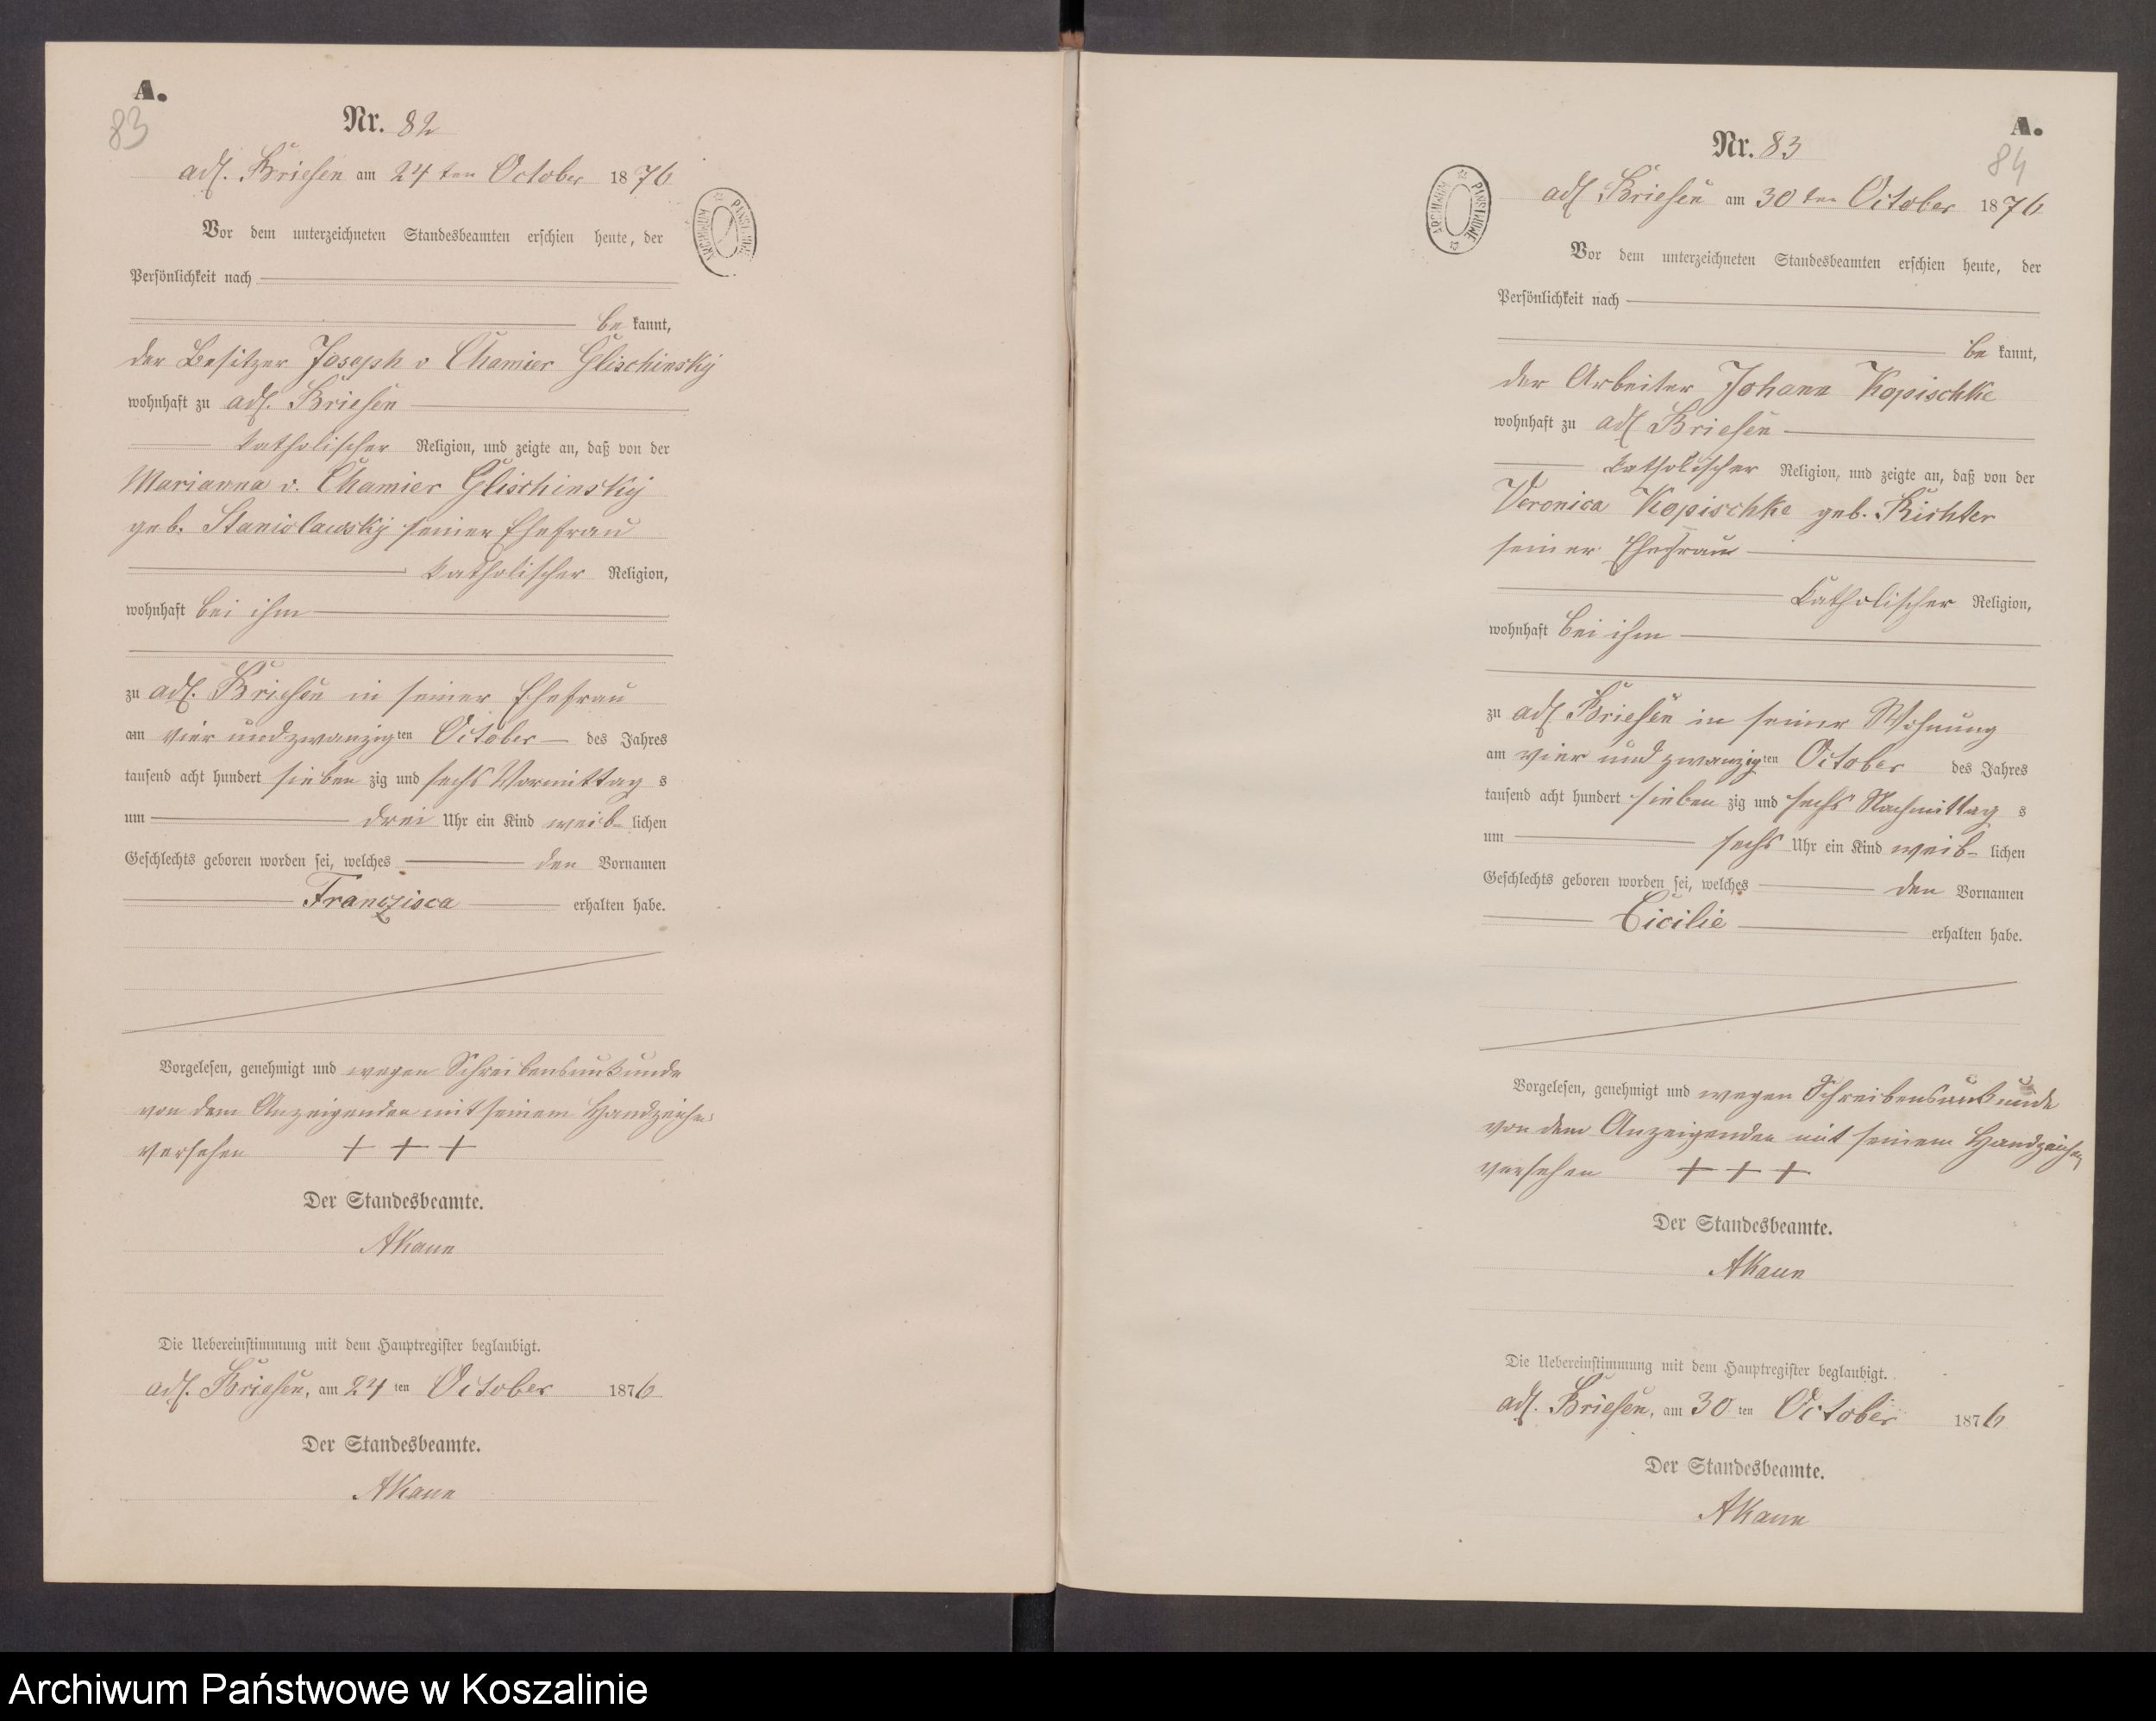 A.
83
Nr. 82
adl. Briesen am 24ten October 1876
Vor dem unterzeichneten Standesbeamten erschien heute, der
Persönlichkeit nach
be kannt,
der Besitzer Joseph v Chamier Glischinsky
wohnhaft zu adl. Briesen
katholischer Religion, und zeigte an, daß von der
Marianna v. Chamier Glischinsky
geb. Staniolawsky seiner Ehefrau
katholischer Religion,
wohnhaft bei ihm
zu adl. Briesen in seiner Ehefrau
am vier und zwanzigten October des Jahres
tausend acht hundert sieben zig und sechs Vormittag s
um drei Uhr ein Kind weib- lichen
Geschlechts geboren worden sei, welches den Vornamen
Franczisca erhalten habe.
Vorgelesen, genehmigt und wegen Schreibensunkunde
von dem Anzeigenden mit seinem Handzeichen
versehen + + +
Der Standesbeamte.
AKaun
Die Uebereinstimmung mit dem Hauptregister beglaubigt.
adl. Briesen, am 24 ten October 1876
Der Standesbeamte.
AKaun
A.
84
Nr. 83
adl Briesen am 30ten October 1876
Vor dem unterzeichneten Standesbeamten erschien heute, der
Persönlichkeit nach
be kannt,
der Arbeiter Johann Kopischke
wohnhaft zu adl Briesen
katholischer Religion, und zeigte an, daß von der
Veronica Kopischke geb. Richter
seiner Ehefrau
katholischer Religion,
wohnhaft bei ihm
zu adl Briesen in seiner Wohnung
am vier und zwanzigten October des Jahres
tausend acht hundert sieben zig und sechs Nachmittag s
um sechs Uhr ein Kind weib- lichen
Geschlechts geboren worden sei, welches den Vornamen
Cicilie erhalten habe.
Vorgelesen, genehmigt und wegen Schreibensunkunde
von dem Anzeigenden mit seinem Handzeichen
versehen + + +
Der Standesbeamte.
AKaun
Die Uebereinstimmung mit dem Hauptregister beglaubigt.
adl. Briesen, am 30 ten October 1876
Der Standesbeamte.
AKaun
ARCHIWUM PAŃSTWOWE
ARCHIWUM PAŃSTWOWE
Archiwum Państwowe w Koszalinie